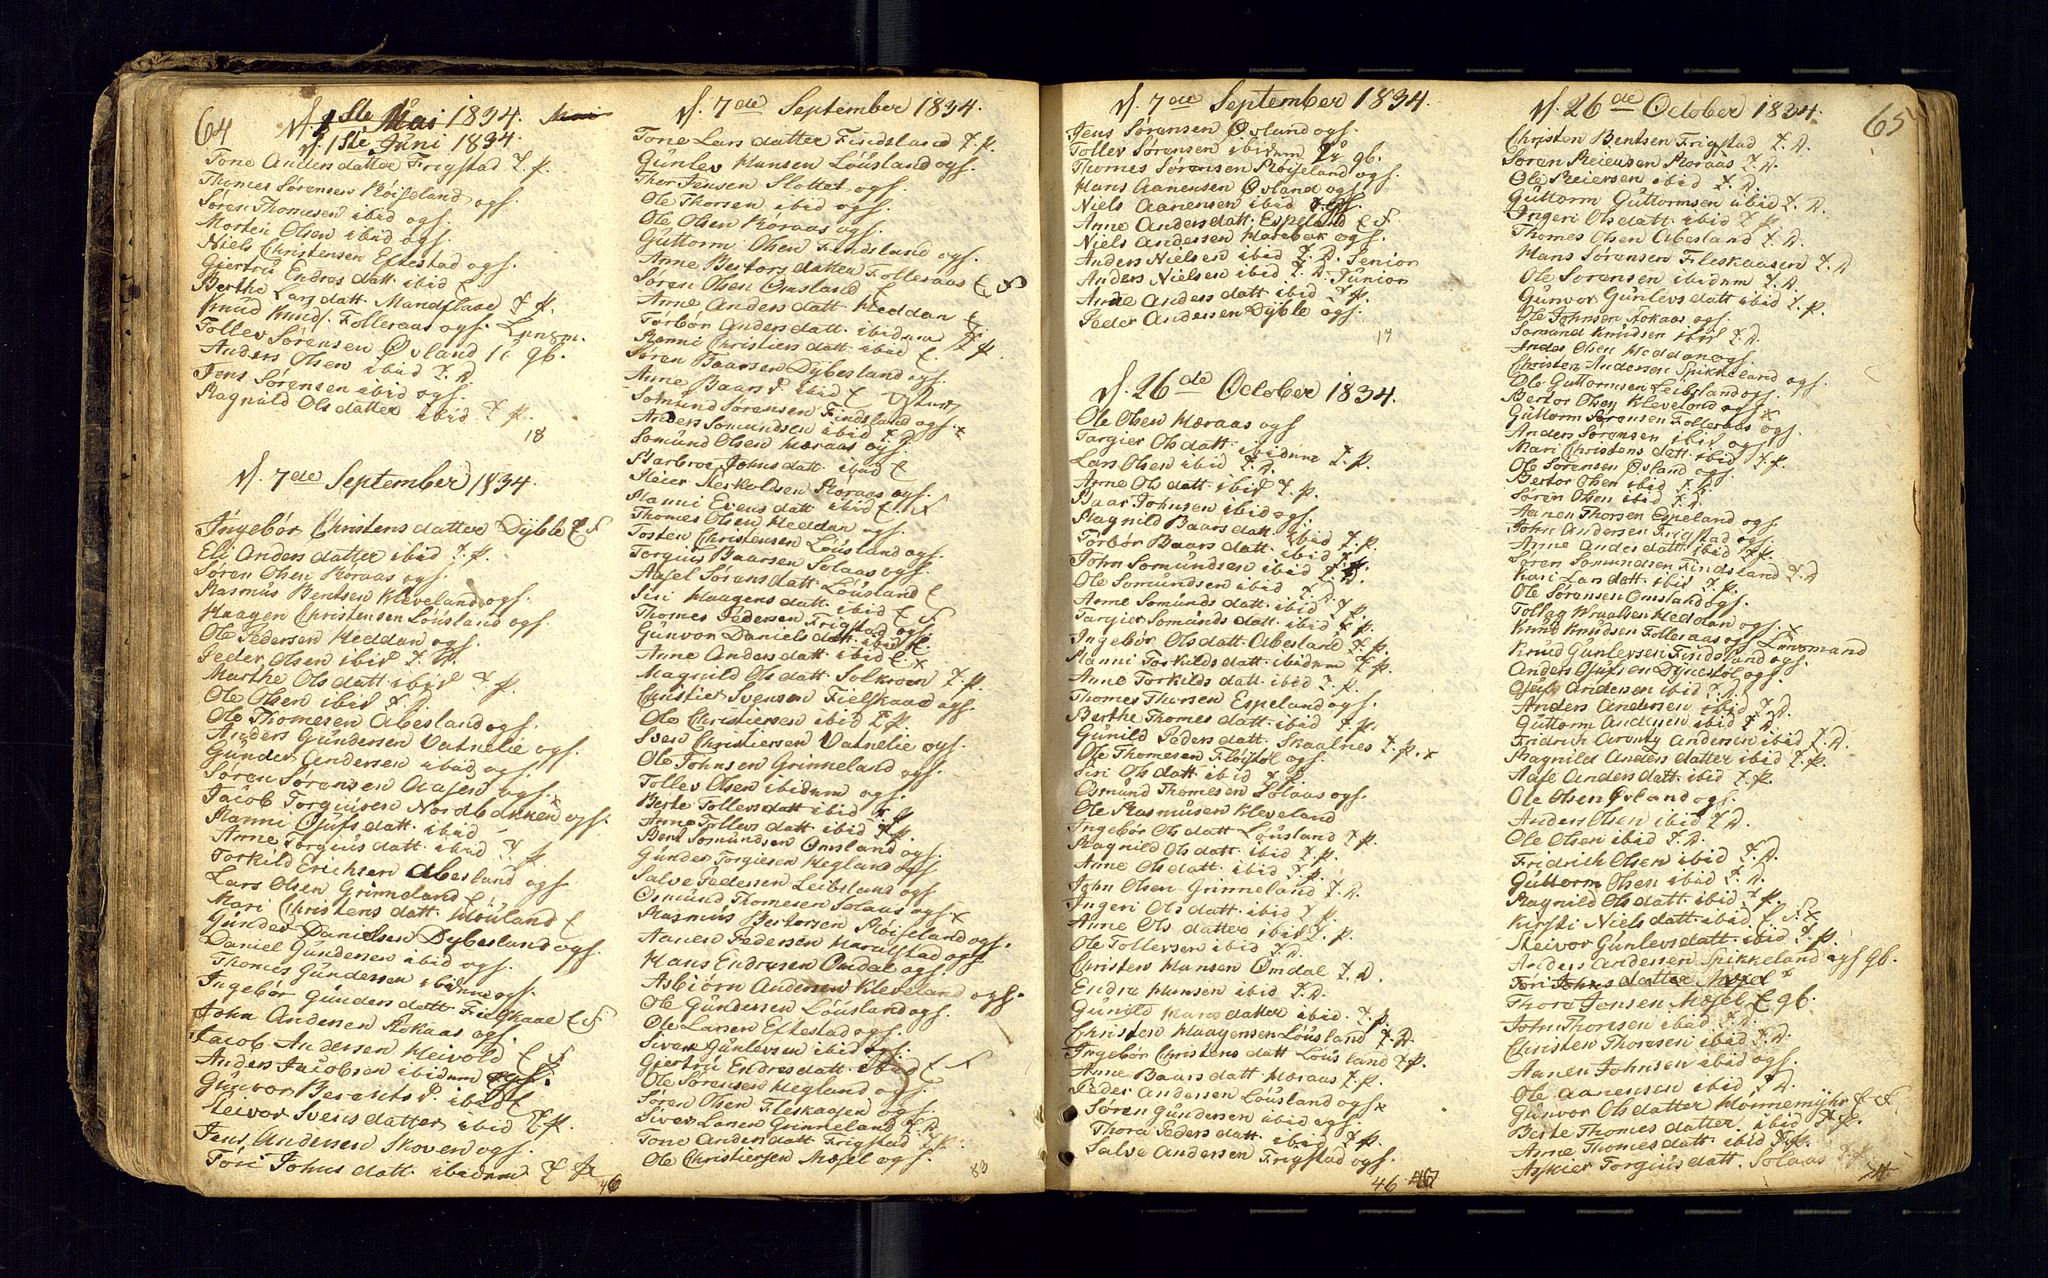 64
d. 1ste Mai 1834.
d. 1ste Juni 1834
Tone Andersdatter Frigstad T. P.
Thomes Sørensen Røiseland ogh.
Søren Thomesen ibid ogh.
Morten Olsen ibid ogh.
Niels Christensen Eftestad ogh.
Giertrü Endres datt. ibid E
Berthe Lars datt. Mandflaae T. P.
Knüd Knüds. Folleraas ogh. Lensm.
Tollev Sørensen Øvland ii gb.
Anders Olsen ibid T. D
Jens Sørensen ibid ogh.
Ragnild Olsdatter ibid T. P.
18
d. 7de September 1834.
Ingebør Christensdatter Dÿble E F
Eli Andersdatter ibid T. P.
Søren Olsen Røraas ogh.
Rasmüs Bentsen Kleveland ogh.
Haagen Christensen Løüsland ogh.
Ole Pedersen Heddan ogh.
Peder Olsen ibid T. D.
Marthe Olsdatt ibid T P.
Ole Olsen ibid T.
Ole Thomesen Abesland ogh.
Anders Gündersen Vatnelie ogh.
Günder Andersen ibid ogh.
Søren Sørensen Aasen ogh.
Jacob Torgüisen Nordbakken ogh.
Ranni Gjüfs datt. ibid E
Anne Torgüisdatt. ibid T P
Torkild Erichsen Abesland ogh
Lars Olsen Grinneland E
Mari Christens datt. ibid
Günder Danielsen Dÿbesland ogh.
Daniel Gündersen ibid ogh.
Thomes Gündersen ibidum ogh.
Ingebør Günders datt. Fielskaae E F
John Andersen Røkaas ogh.
Jacob Andersen Heivold E F
Anders Jacobsen ibidum ogh.
Günvor Berents D. ibid E
Steivor Svensdatter ibid T. P.
Jens Andersen Skoven ogh.
Tøri Johns datt. ibidum T P
46
d. 7de September 1834.
Tone Lars datter Findsland T. P.
Günlev Hansen Løüsland ogh.
Thor Jensen Slottet ogh.
Ole Thorsen ibid ogh.
Ole Olsen Røraas ogh.
Güttorm Olsen Findsland ogh.
Anne Bertors datter Folleraas E F
Søren Olsen Omsland E
Anne Anders datt. Heddan E
Tørbør Andersdatt. ibidum T P.
Ranni Christensdatt. ibid E
Søren Baarsen Dÿbesland ogh.
Anne Baars D. ibid E
Somünd Sørensen Findsland ogh. x
Anders Somündsen ibid T. D
Somünd Olsen Hæraas ogh.
Starbroe Johnsdatt. ibid E
Reier Reskoldsen Røraas ogh.
Ranni Evensdatt ibid E F
Thomes Olsen Heddan ogh.
Tosten Christensen Løüsland ogh.
Torgüis Baarsen Solaas ogh.
Aasel Sørensdatt. Løüsland E
Siri Haagensdatt. ibid E F
Thomes Pedersen Frigstad ogh.
Günvor Danielsdatt. ibid E
Anne Andersdatt. ibid E x
Magnild Olsdatt. Solkroen T. P.
Christier Svensen Fielskaae ogh.
Ole Christiersen ibid T P.
Sven Christiersen Vatnelie ogh.
Ole Johnsen Grinneland ogh.
Tollev Olsen ibidum ogh.
Berte Tollevsdatt ibid T P
Anne Tollevs datt. ibid T. P.
Bent Somündsen Omsland ogh.
Günder Torgiesen Hegland ogh.
Salve Pedersen Leibsland ogh.
Osmünd Thomesen Solaas ogh. x
Rasmüs Bertorsen Røiseland ogh.
Aanen Pedersen Haralstad ogh.
Hans Endresen Omdal ogh.
Asbiørn Andersen Kleveland ogh.
Ole Gündersen Løüsland ogh.
Ole Larsen Eftestad ogh.
Siver Günlevsen ibid ogh.
Giertrü Endresdatt. ibid E F
Ole Sørensen Hegland ogh.
Søren Olsen Fleskaasen ogh.
Siver Larsen Grinneland T. D
Tone Andersdatt Frigstad T. P.
Ole Christiersen Møsel ogh.
80
d. 7de September 1834.
Jens Sørensen Øvland ogh.
Tollev Sørensen ibidum ii gb.
Thomes Sørensen Røiseland ogh.
Hans Aanensen Øvland ogh.
Niels Aanensen ibid T. D.
Anne Andersdatt. Espeland E F
Niels Andersen Harebak ogh.
Anders Nielsen ibid T. D. Senior
Anders Nielsen ibid T. D. Junior
Anne Anders datt ibid T P.
Peder Andersen Dÿble ogh.
17
d. 26de October 1834.
Ole Olsen Hæraas ogh
Targier Olsdatt. ibidum T. P.
Lars Olsen ibid T. D.
Arne Olsdatt ibid T. P.
Baar Johnsen ibid ogh.
Ragnild Baarsdatt ibid T. P.
Torbør Baarsdatt. ibid T. P.
John Somündsen ibid T. D.
Ole Somündsen ibid T. D.
Anne Somündsdatt. ibid T P
Targier Somündsdatt. ibid T P.
Ingebør Olsdatt. Abesland T. P.
Ranni Torkildsdatt ibidum T P.
Anne Torkildsdatt. ibid T. P.
Thomes Thorsen Espeland ogh.
Berthe Thomesdatt. ibid T. P.
Günild Peders datt. Skaalnes T. P. x
Ole Thomesen Fløistøl ogh.
Siri Olsdatt ibid T. P
Osmünd Thomesen Solaas ogh.
Ole Rasmüsen Kleveland
Ingebør Olsdatt Løüsland T P.
Ragnild Olsdatt. ibid T. P.
Anne Olsdatt. ibid T P.
John Olsen Grinneland T. D
Ingeri Olsdatt. ibid T P.
Anne Olsdatter ibid T. P.
Ole Tollevsen ibid T. D.
Christen Hansen Omdal T. D.
Endre Hansen ibid T. D.
Günild Hansdatter ibid. T P.
Christen Haagensen Løüsland T. D.
Ingebør Christensdatt Løüsland T P.
Anne Baarsdatt Hæraas T. P.
Peder Andersen Løüsland ogh x
Søren Gündersen ibid ogh.
Thora Pedersdatt. ibid T P.
Salve Andersen Frigstad ogh.
46
65
d. 26de October 1834.
Christen Bentsen Frigstad T. D.
Søren Reiersen Røraas T D.
Ole Reiersen ibid T. D.
Güttorm Güttormsen ibid T. D.
Ingeri Olsdatt ibid T P.
Thomes Olsen Abesland T. D.
Hans Sørensen Fleskaasen T. D
Ole Sørensen ibidum T. D.
Günvor Günlevsdatt ibid T. P.
Ole Johnsen Røkaas ogh.
Somünd Knüdsen ibid T. D.
Anders Olsen Heddan ogh.
Christen Andersen Spikkeland ogh.
Ole Güttormsen Leibsland ogh.
Bertor Olsen Kleveland ogh x
Güttorm Sørensen Folleraas ogh.
Anders Sørensen ibid ogh.
Mari Christensdatt. ibid T. P.
Ole Sørensen Øvland ogh.
Bertor Olsen ibid T. D.
Søren Olsen ibid T. D.
Aanen Thorsen Espeland ogh.
John Andersen Frigstad ogh.
Anne Andersdatt. ibid T. P.
Søren Somündsen Findsland T. D
Kari Larsdatt. ibid T. P.
Ole Sørensen Omsland ogh.
Tollag Wraalsen Heddan ogh. x
Knüd Knüdsen Folleraas ogh. Lensmand
Knüd Günlevsen Findsland ogh.
Anders Gjüfsen Dÿrestøl ogh.
Gjüfs Andersen ibid T. D.
Anders Andersen ibid T. D.
Güttorm Andersen ibid T. D.
Fridrich Arentz Andersen ibid T. D.
Ragnild Anders datter ibid T. P.
Aase Anders datt. ibid T. P.
Ole Olsen Øvland ogh.
Anders Olsen ibid T. D.
Ole Olsen ibid T. D.
Fridrich Olsen ibid T. D.
Güttorm Olsen ibid T. D.
Ragnild Olsdatt ibid T P.
Kirsti Nielsdatt. ibid E F. x
Steivor Günlevsdatt. ibid T. P.
Anders Andersen Spikkeland ogh gb.
Tøri Johnsdatter Møsel
Thora Jensen Møsel E gb.
John Thoresen ibid T. D.
Christen Thoresen ibid T. D.
Aanen Johnsen ibid ogh.
Ole Aanensen ibid T D.
Günvor Olsdatter Hønnemÿhr E F
Berte Thomesdatter. ibid T P.
Anne Thomesdatt. ibid T. P.
Askier Torgiusdatt. Solaas